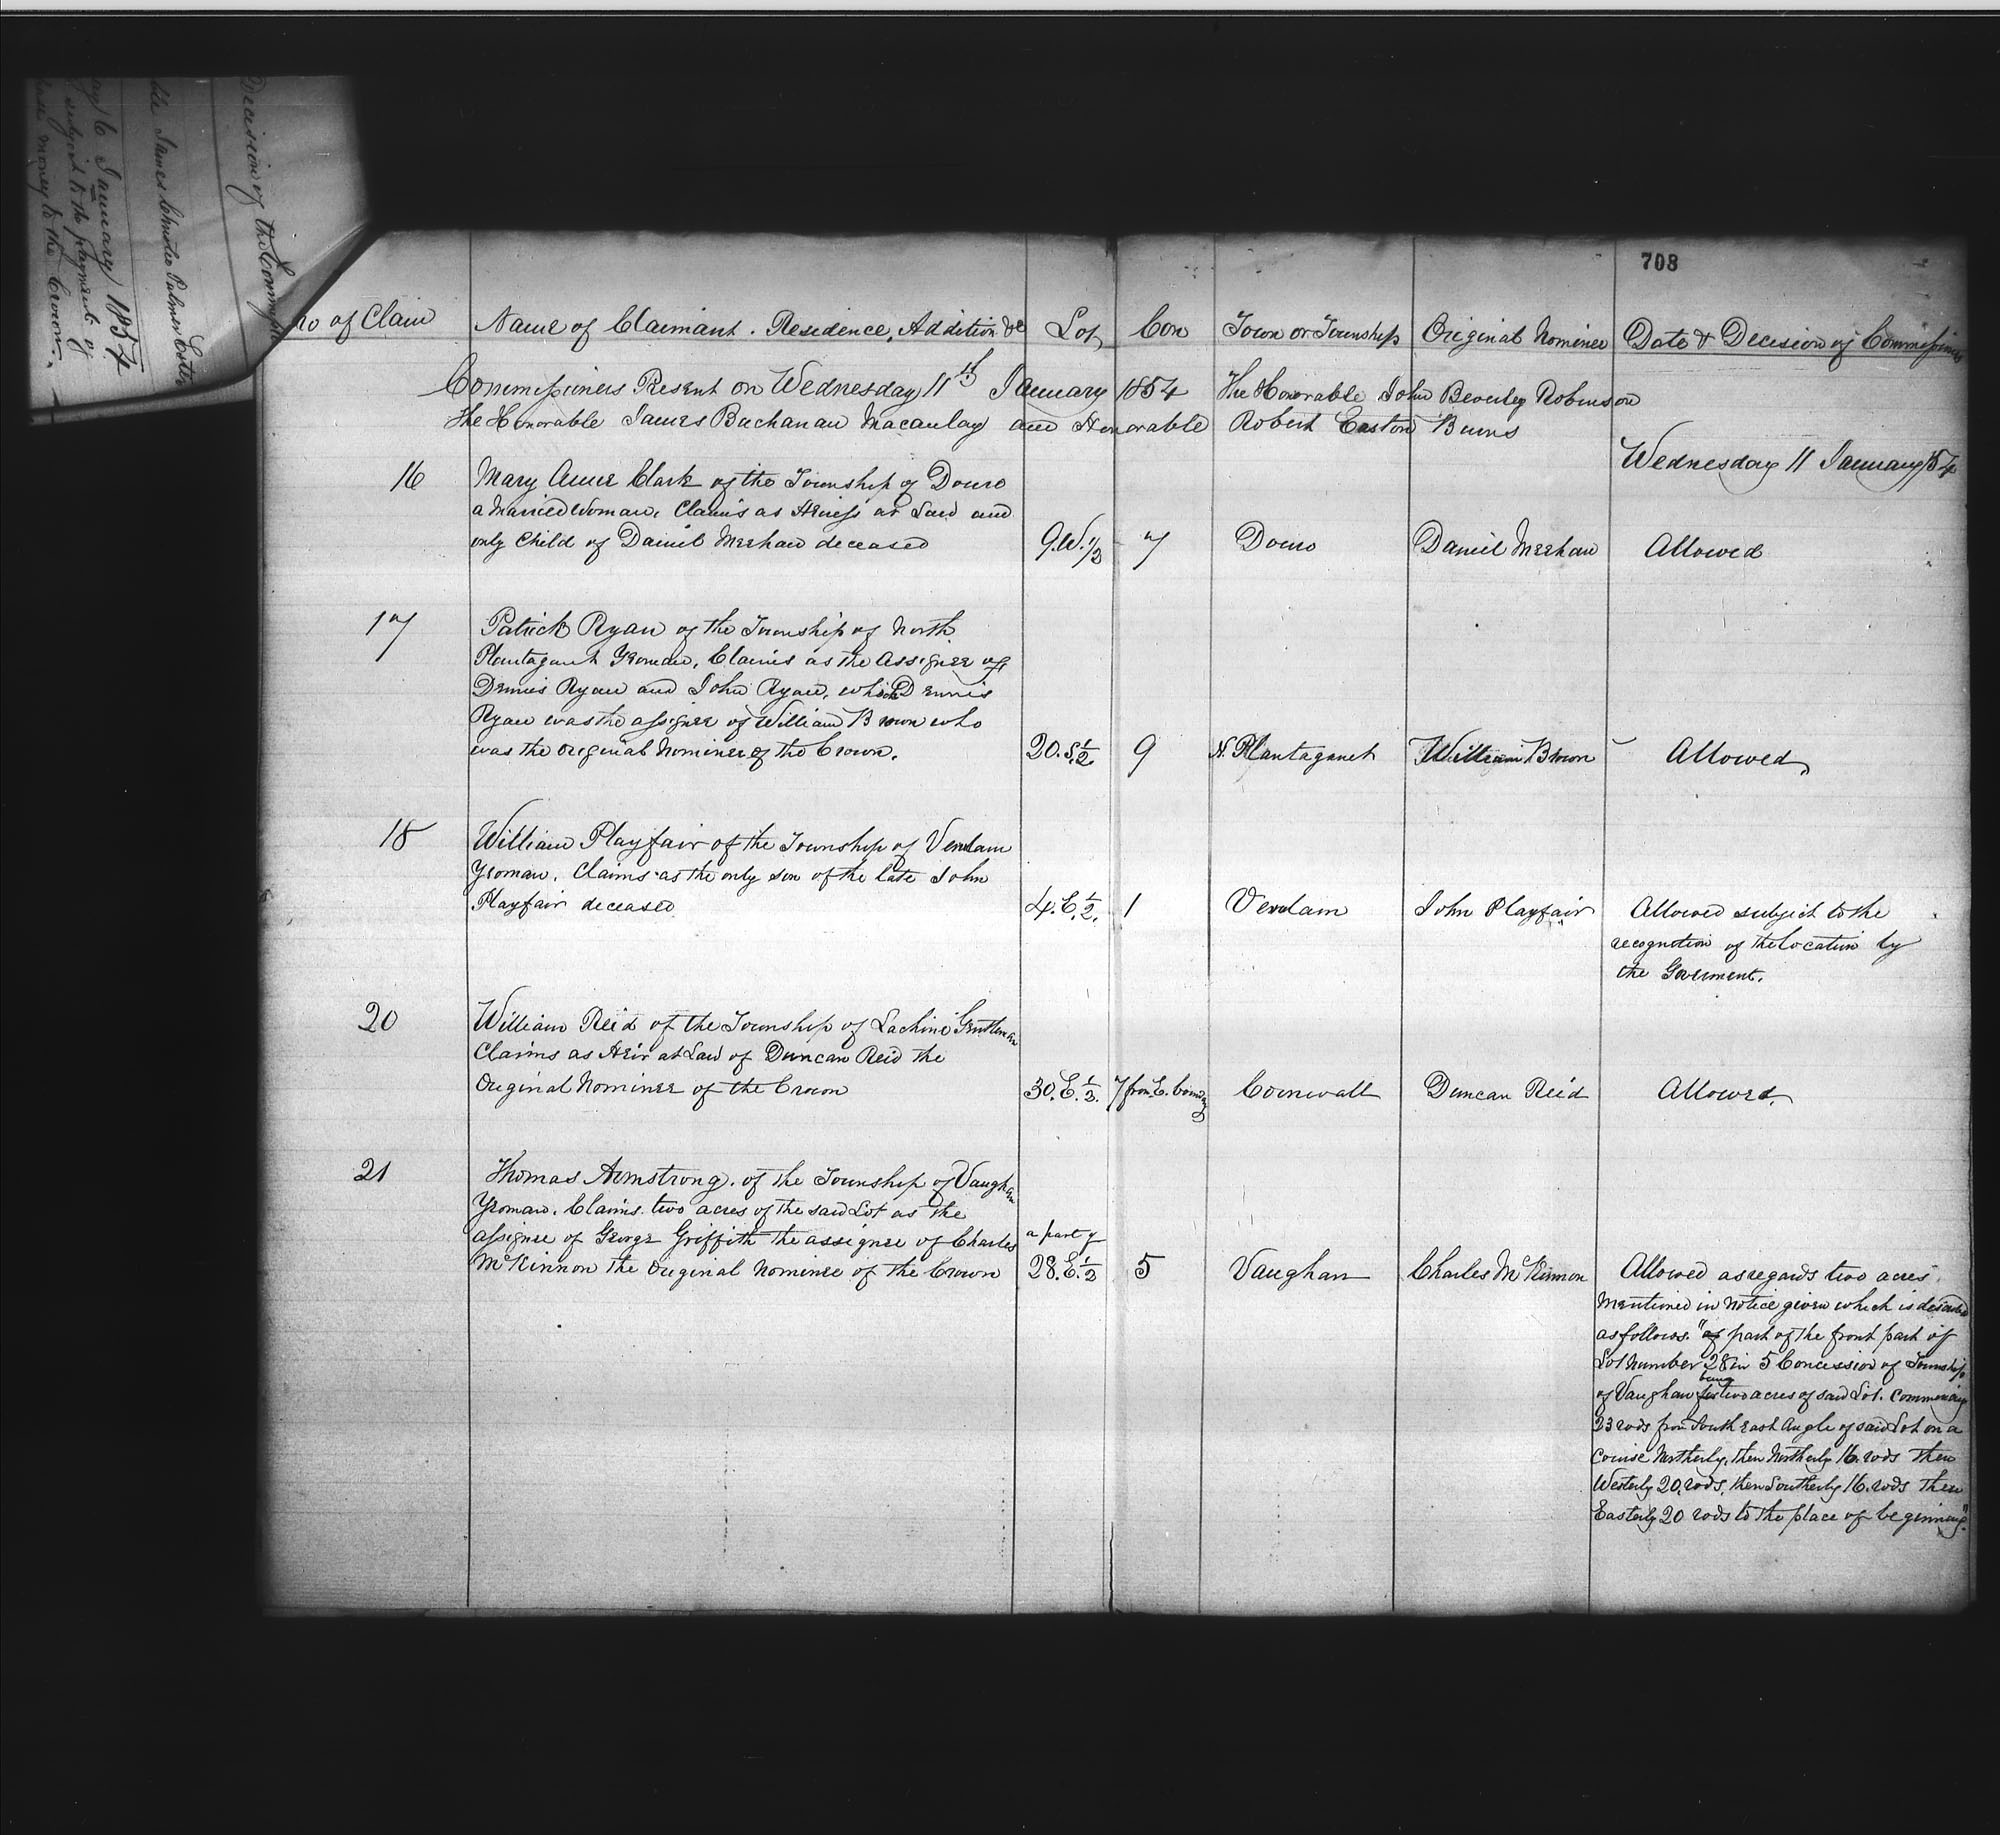 Decision of the Commiss
ble James Christie Palmer Esten
ay 16 January 1854
subject to the payment of
hase money to the Crown.
708
No of Claim Name of Claimant. Residence, Addition &c Lot Con Town or Township Original Nominee Date & Decision of Commissioners
Commissioners Present on Wednesday 11th January 1854 The Honorable John Beverley Robinson
The Honorable James Buchanan Macaulay and Honorable Robert Easton Burns
Wednesday 11 January/54
16 Mary Anne Clark of the Township of Douro
a Married Woman, Claims as Heiress at Law and
only Child of Daniel Meehan deceased 9.W.1/2 7 Douro Daniel Meehan Allowed
17 Patrick Ryan of the Township of North
Plantaganet Yeoman, Claims as the Assignee of
Dennis Ryan and John Ryan, which Dennis
Ryan was the assignee of William Brown who
was the original Nominee of the Crown. 20.S.1/2. 9 N. Plantaganet William Brown Allowed,
18 William Playfair of the Township of Verulam
Yeoman, Claims as the only son of the late John
Playfair deceased 4.E.1/2. 1 Verulam John Playfair Allowed subject to the
recognition of the location by
the Goverment.
20 William Reid of the Township of Lachine Gentleman
Claims as Heir at Law of Duncan Reid the
Original Nominee of the Crown 30.E.1/2. 7 from E. Boundy Cornwall Duncan Reid Allowed,
21 Thomas Armstrong. of the Township of Vaughan
Yeoman. Claims two acres of the said Lot as the
assignee of George Griffith the assignee of Charles a part of
McKinnon the Original Nominee of the Crown 28.E.1/2 5 Vaughan Charles McKinnon Allowed as regards two acres
Mentioned in Notice given which is described
as follows. "of part of the front part of
Lot Number 28 in 5 Concession of Township
being
of Vaughan for two acres of said Lot. Commencing
23 rods from South East Angle of said Lot on a
course Northerly, then Northerly 16 rods then
Westerly 20 rods, then Southerly 16. rods then
Easterly 20 rods to the place of beginning."